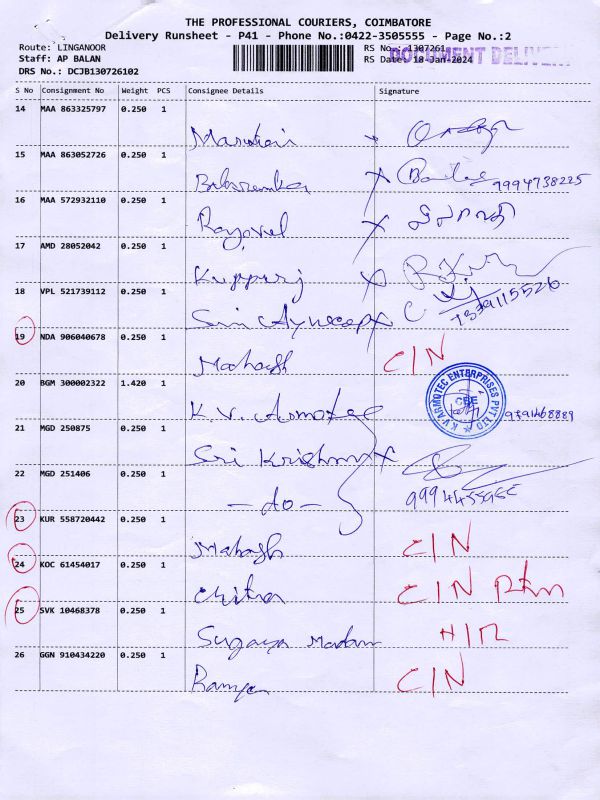 THE PROFESSIONAL COURIERS, COIMBATORE
Delivery Runsheet - P41 - Phone No.:0422-3505555 - Page No.:2
Route: LINGANOOR
RS No.: 1307261
DOCUMENT DELIVERY
Staff: AP BALAN
RS Date: 18-Jan-2024
DRS No.: DCJB130726102
S No Consignment No Weight PCS Consignee Details Signature
14 MAA 863325797 0.250 1
15 MAA 863052726 0.250 1
9994738225
16 MAA 572932110 0.250 1
17 AMD 28052042 0.250 1
Kuppuraj
18 VPL 521739112 0.250 1
19 NDA 906040678 0.250 1
Mahagh CIN
20 BGM 300002322 1.420 1
K.V. Armotec
K V ARMOTEC ENTERPRISES PVT LTD
CBE
21 MGD 250875 0.250 1
Sri Krishna
22 MGD 251406 0.250 1
- do -
23 KUR 558720442 0.250 1
Mahagh CIN
24 KOC 61454017 0.250 1
Chitra CIN Rtn
25 SVK 10468378 0.250 1
Madam
26 GGN 910434220 0.250 1
Ramya CIN